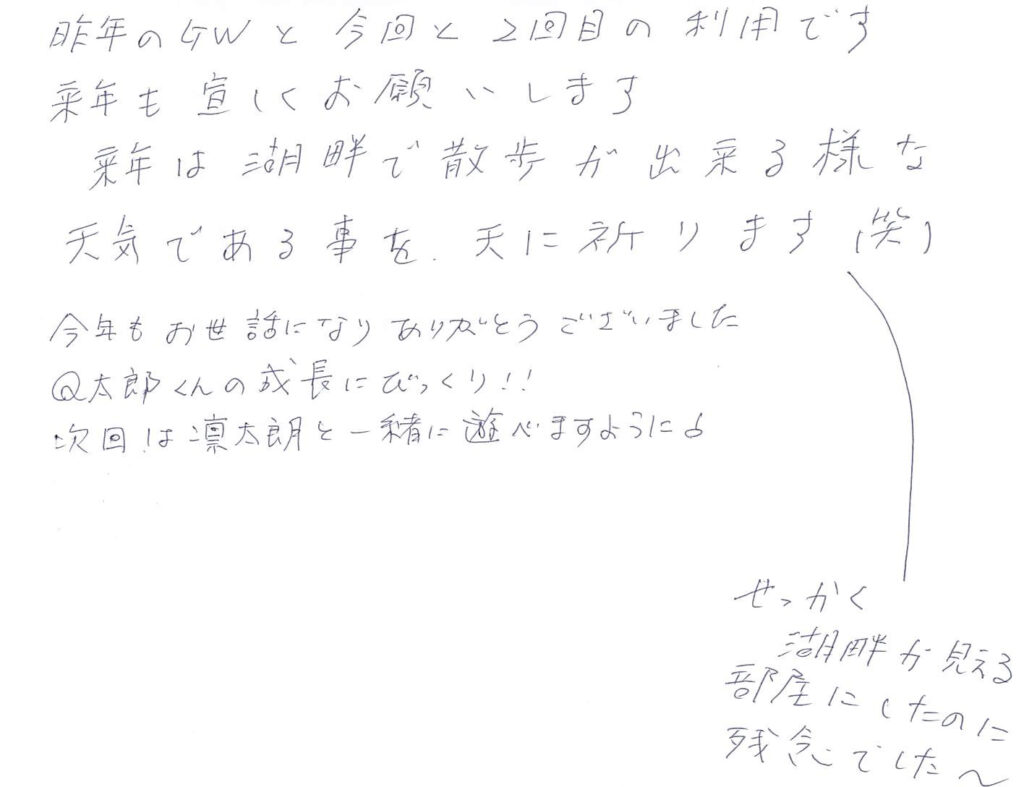 昨年のGWと今回と2回目の利用です
来年も宜しくお願いします
来年は湖畔で散歩が出来る様な
天気である事を.天に祈ります(笑)
今年もお世話になりありがとうございました
Q太郎くんの成長にびっくり!!
次回は凛太朗と一緒に遊べますように♪
せっかく
湖畔が見える
部屋にしたのに
残念でした〜